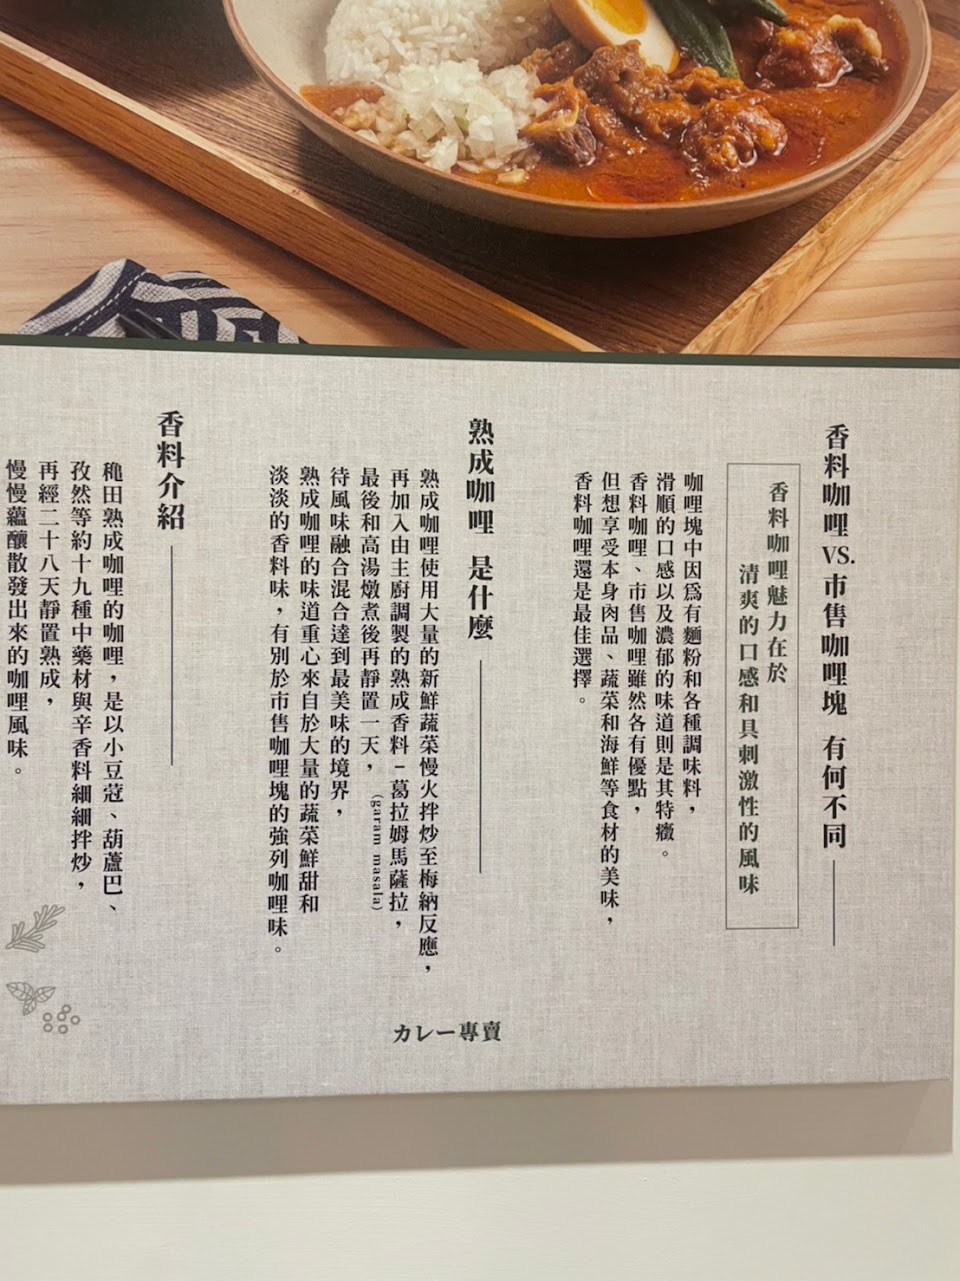 香料咖哩VS.市售咖哩塊 有何不同
香料咖哩魅力在於
清爽的口感和具刺激性的風味
咖哩塊中因爲有麵粉和各種調味料，
滑順的口感以及濃郁的味道則是其特徵。
香料咖哩、市售咖哩雖然各有優點，
但想享受本身肉品、蔬菜和海鮮等食材的美味，
香料咖哩還是最佳選擇。
熟成咖哩 是什麼
熟成咖哩使用大量的新鮮蔬菜慢火拌炒至梅納反應，
再加入由主廚調製的熟成香料－葛拉姆馬薩拉，
(garam masala)
最後和高湯燉煮後再靜置一天，
待風味融合混合達到最美味的境界，
熟成咖哩的味道重心來自於大量的蔬菜鮮甜和
淡淡的香料味，有別於市售咖哩塊的強列咖哩味。
香料介紹
穐田熟成咖哩的咖哩，是以小豆蔻、葫蘆巴、
孜然等約十九種中藥材與辛香料細細拌炒，
再經二十八天靜置熟成，
慢慢蘊釀散發出來的咖哩風味。
カレー專賣